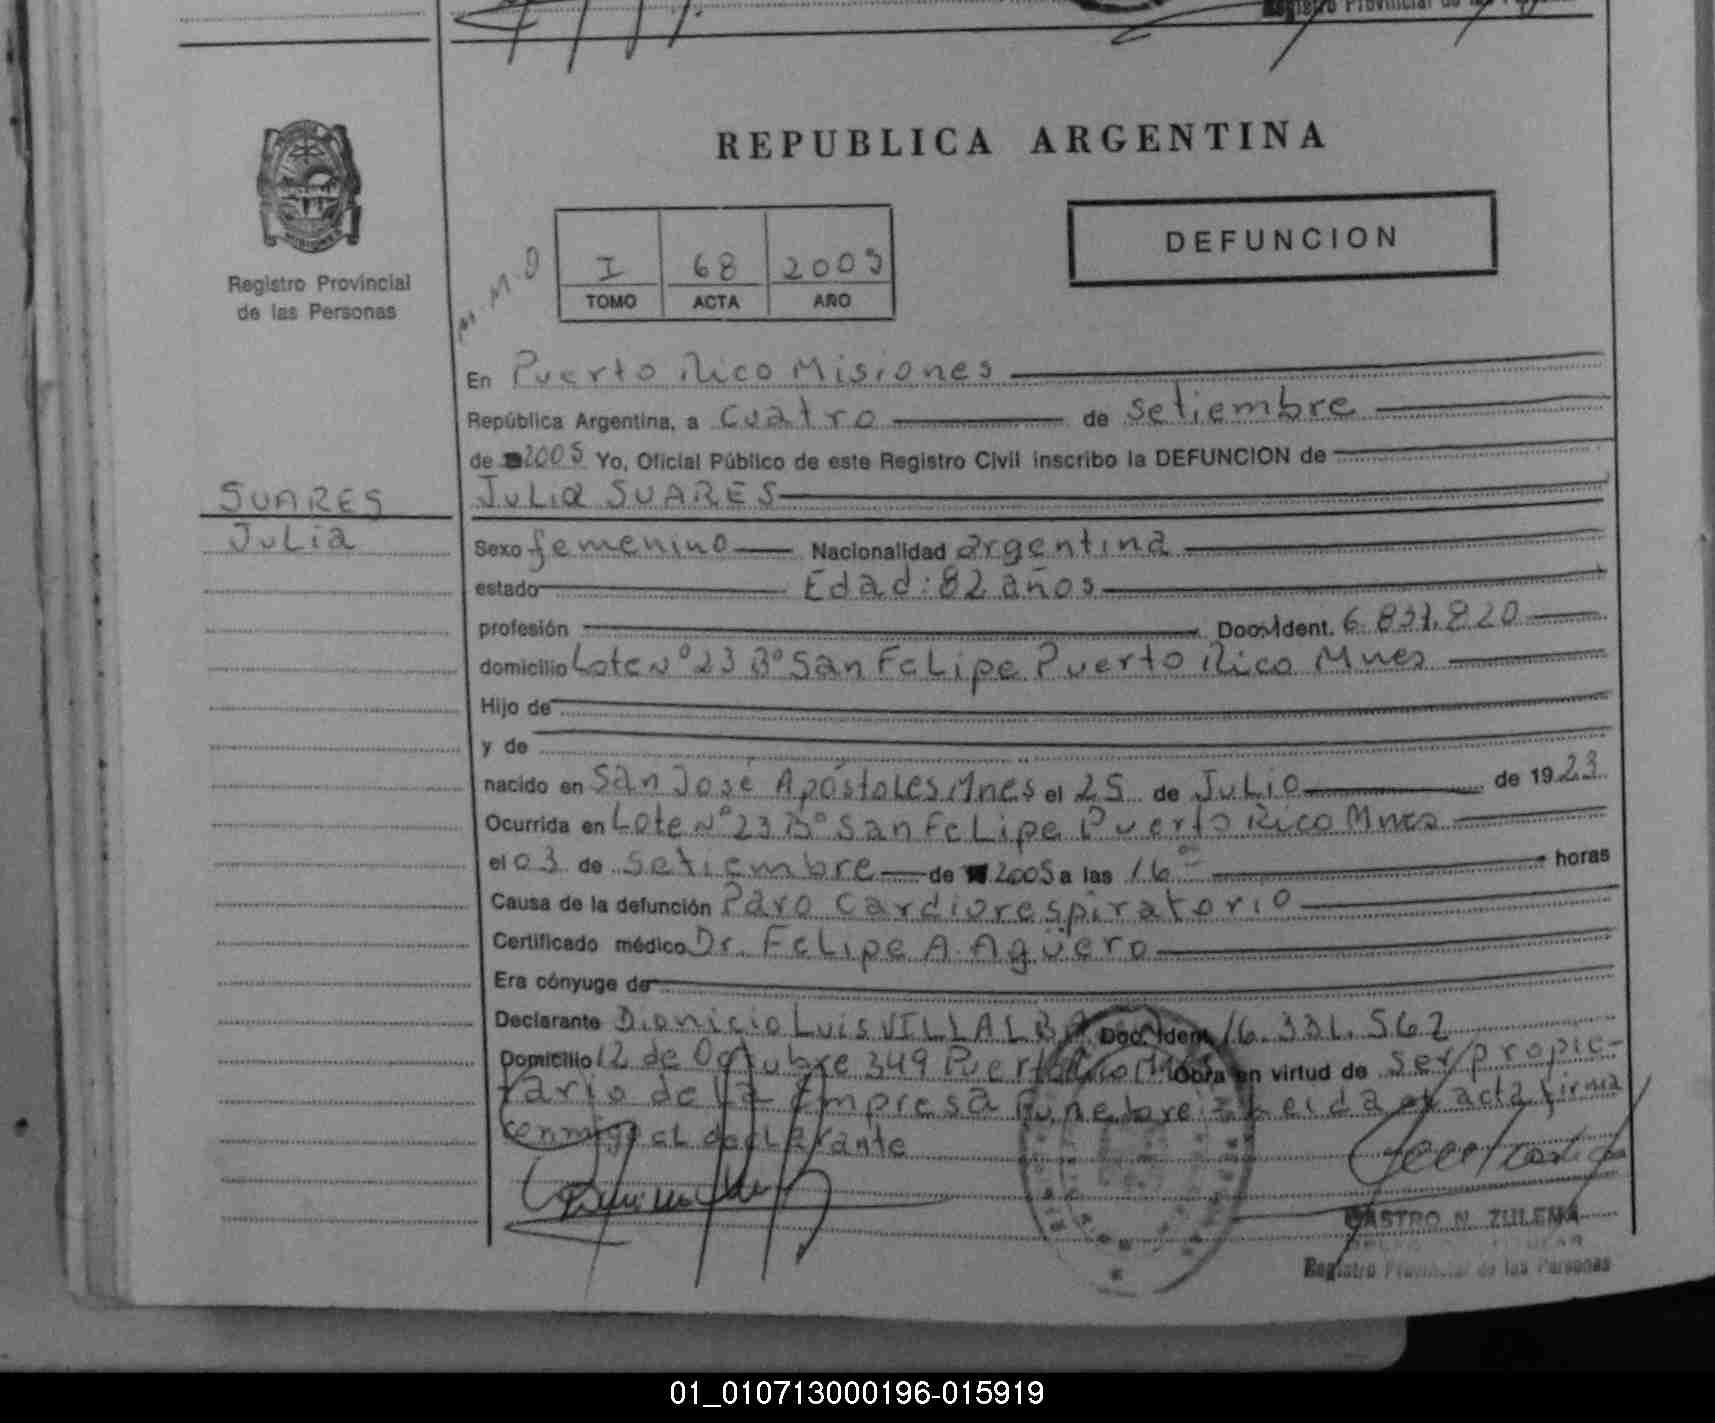 Registro Provincial de las Personas
REPUBLICA ARGENTINA
DEFUNCION
Registro Provincial
de las Personas
M.M.O
I 68 2005
TOMO ACTA AÑO
En Puerto Rico Misiones
República Argentina, a cuatro de setiembre
de 2005 Yo, Oficial Público de este Registro Civil inscribo la DEFUNCION de
SUARES
Julia
Julia SUARES
Sexo femenino Nacionalidad argentina
estado Edad: 82 años
profesión Doc. Ident. 6.831.820
domicilio Lote Nº 23 Bº San Felipe Puerto Rico Mnes
Hijo de
y de
nacido en San José Apóstoles Mnes el 25 de Julio de 1923
Ocurrida en Lote Nº 23 Bº San Felipe Puerto Rico Mnes
el 03 de setiembre de 2005 a las 16 00 horas
Causa de la defunción Paro Cardiorespiratorio
Certificado médico Dr. Felipe A. Agüero
Era cónyuge de
Declarante Dionicio Luis VILLALBA Doc. Ident. 16.331.562
Domicilio 12 de Octubre 349 Puerto Rico Mnes Obra en virtud de ser propie-
tario de la Empresa Funebre Leida el acta firma
conmigo el declarante
CASTRO N. ZULEMA
Registro Provincial de las Personas
01_010713000196-015919